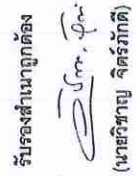 รับรองสำเนาถูกต้อง
(นายวิชาญ จิตร์ภักดี)